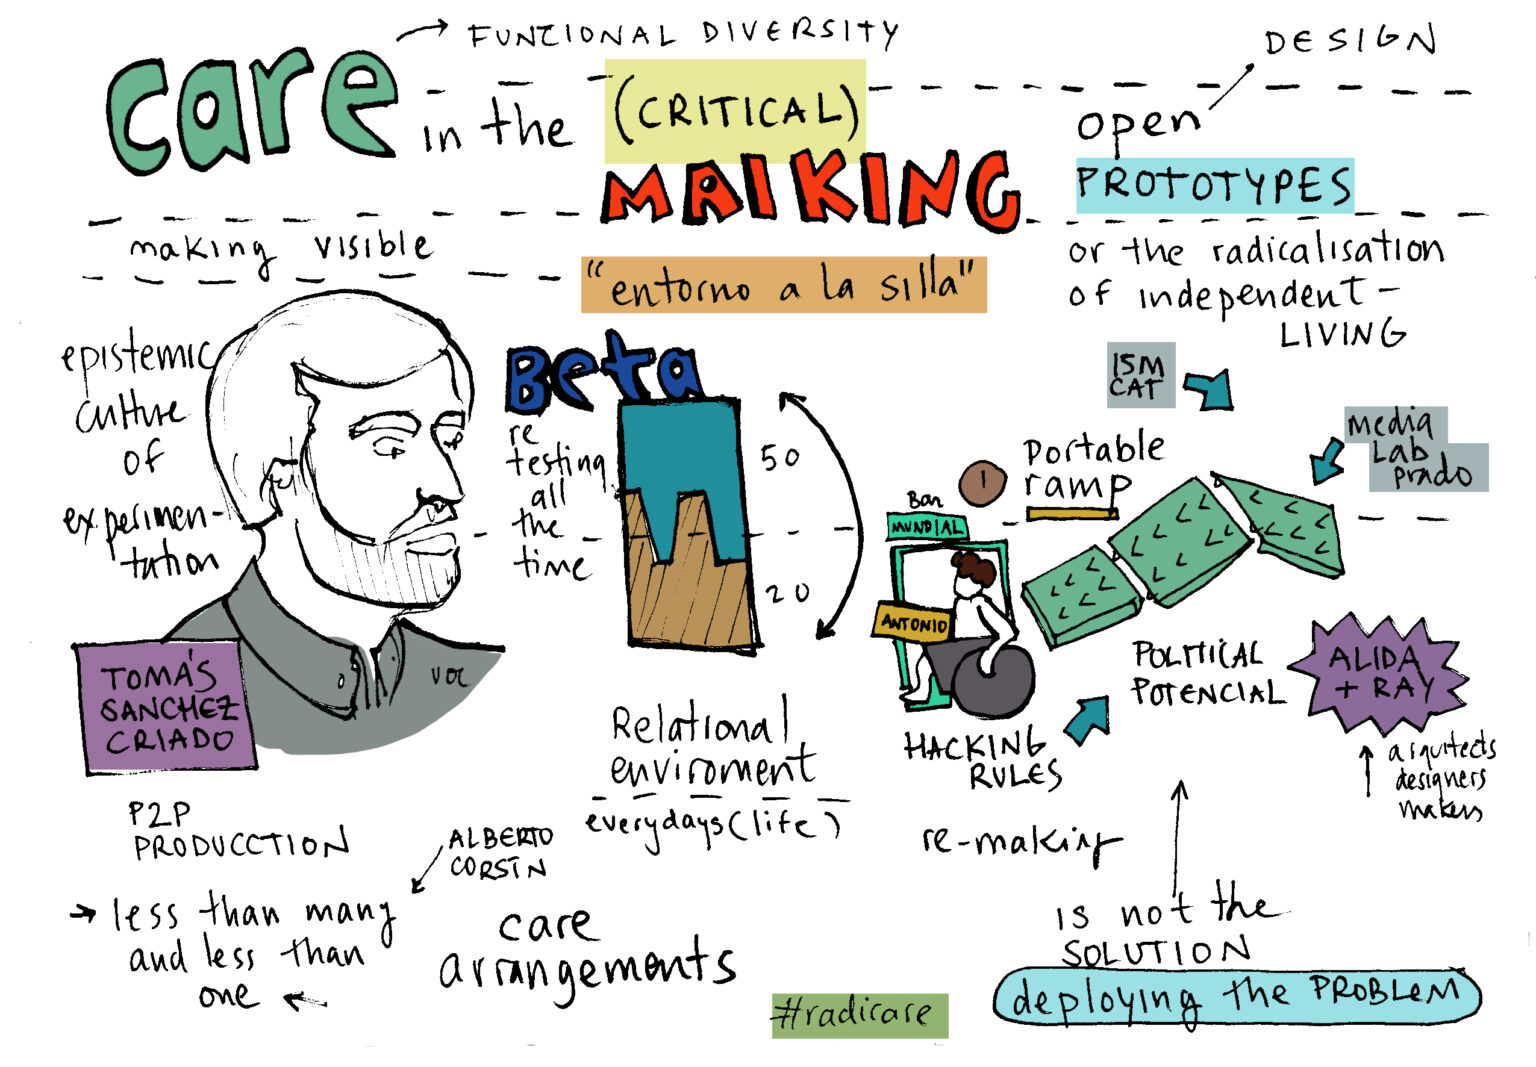 care
FUNZIONAL DIVERSITY
in the
(CRITICAL)
MAIKING
"entorno a la silla"
DESIGN
open
PROTOTYPES
or the radicalisation
of independent-
LIVING
making visible
epistemic
culture
of
experimen-
tation
TOMÁS
SANCHEZ
CRIADO
VOC
Beta
re
testing
all
the
time
50
20
15M
CAT
Media
Lab
prado
Portable
ramp
1
Bar
MUNDIAL
ANTONIO
POLITICAL
POTENCIAL
ALIDA
+ RAY
arquitects
designers
makers
HACKING
RULES
Relational
enviroment
everydays (life)
P2P
PRODUCCTION
ALBERTO
CORSIN
less than many
and less than
one
care
arrangements
re-making
is not the
SOLUTION
deploying the PROBLEM
#radicare